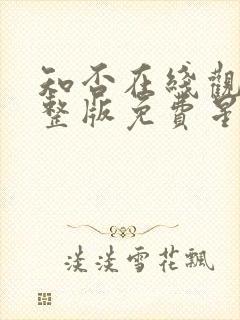 知否在綫觀
整版免費星
淡淡雪花飄